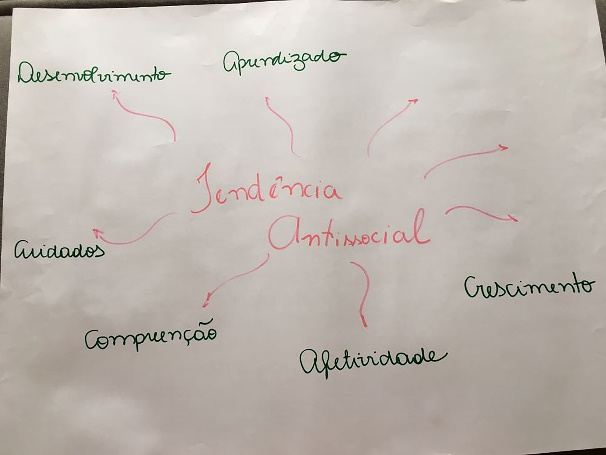 Desenvolvimento
Aprendizado
Tendência
Antissocial
Cuidados
Crescimento
Compreenção
Afetividade